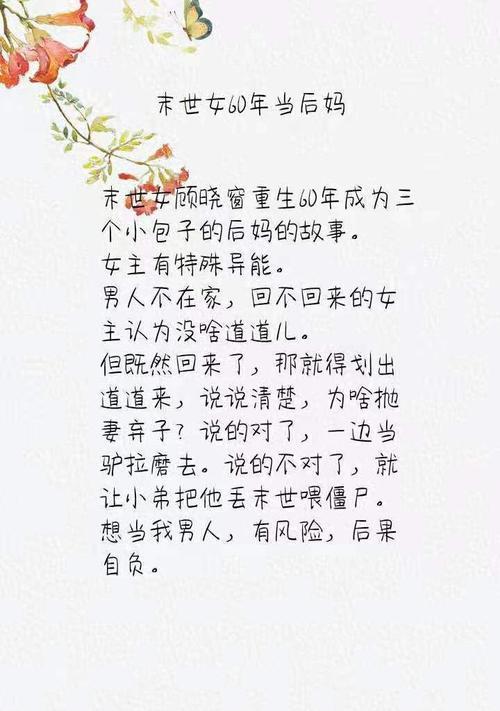 末世女60年当后妈
末世女顾晓窗重生60年成为三
个小包子的后妈的故事。
女主有特殊异能。
男人不在家，回不回来的女
主认为没啥道道儿。
但既然回来了，那就得划出
道道来，说说清楚，为啥抛
妻弃子？说的对了，一边当
驴拉磨去。说的不对了，就
让小弟把他丢末世喂僵尸。
想当我男人，有风险，后果
自负。